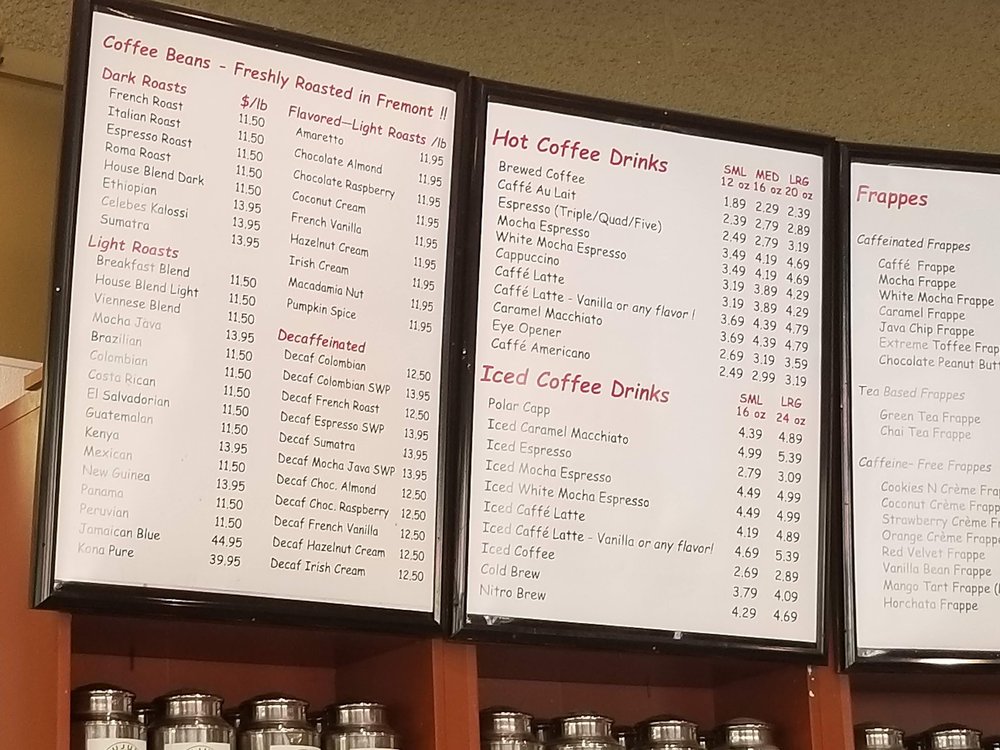 Coffee Beans - Freshly Roasted in Fremont !!
Dark Roasts $/lb
French Roast 11.50
Italian Roast 11.50
Espresso Roast 11.50
Roma Roast 11.50
House Blend Dark 11.50
Ethiopian 13.95
Celebes Kalossi 13.95
Sumatra 13.95
Light Roasts
Breakfast Blend 11.50
House Blend Light 11.50
Viennese Blend 11.50
Mocha Java 13.95
Brazilian 11.50
Colombian 11.50
Costa Rican 11.50
El Salvadorian 11.50
Guatemalan 11.50
Kenya 13.95
Mexican 11.50
New Guinea 13.95
Panama 11.50
Peruvian 11.50
Jamaican Blue 44.95
Kona Pure 39.95
Flavored—Light Roasts /lb
Amaretto 11.95
Chocolate Almond 11.95
Chocolate Raspberry 11.95
Coconut Cream 11.95
French Vanilla 11.95
Hazelnut Cream 11.95
Irish Cream 11.95
Macadamia Nut 11.95
Pumpkin Spice 11.95
Decaffeinated
Decaf Colombian 12.50
Decaf Colombian SWP 13.95
Decaf French Roast 12.50
Decaf Espresso SWP 13.95
Decaf Sumatra 13.95
Decaf Mocha Java SWP 13.95
Decaf Choc. Almond 12.50
Decaf Choc. Raspberry 12.50
Decaf French Vanilla 12.50
Decaf Hazelnut Cream 12.50
Decaf Irish Cream 12.50
Hot Coffee Drinks SML MED LRG
12 oz 16 oz 20 oz
Brewed Coffee 1.89 2.29 2.39
Caffé Au Lait 2.39 2.79 2.89
Espresso (Triple/Quad/Five) 2.49 2.79 3.19
Mocha Espresso 3.49 4.19 4.69
White Mocha Espresso 3.49 4.19 4.69
Cappuccino 3.19 3.89 4.29
Caffé Latte 3.19 3.89 4.29
Caffé Latte - Vanilla or any flavor ! 3.69 4.39 4.79
Caramel Macchiato 3.69 4.39 4.79
Eye Opener 2.69 3.19 3.59
Caffé Americano 2.49 2.99 3.19
Iced Coffee Drinks SML LRG
16 oz 24 oz
Polar Capp 4.39 4.89
Iced Caramel Macchiato 4.99 5.39
Iced Espresso 2.79 3.09
Iced Mocha Espresso 4.49 4.99
Iced White Mocha Espresso 4.49 4.99
Iced Caffé Latte 4.19 4.89
Iced Caffé Latte - Vanilla or any flavor! 4.69 5.39
Iced Coffee 2.69 2.89
Cold Brew 3.79 4.09
Nitro Brew 4.29 4.69
Frappes
Caffeinated Frappes
Caffé Frappe
Mocha Frappe
White Mocha Frappe
Caramel Frappe
Java Chip Frappe
Extreme Toffee Frap
Chocolate Peanut Butt
Tea Based Frappes
Green Tea Frappe
Chai Tea Frappe
Caffeine- Free Frappes
Cookies N Crème Fra
Coconut Crème Frapp
Strawberry Crème F
Orange Crème Frapp
Red Velvet Frappe
Vanilla Bean Frappe
Mango Tart Frappe (
Horchata Frappe